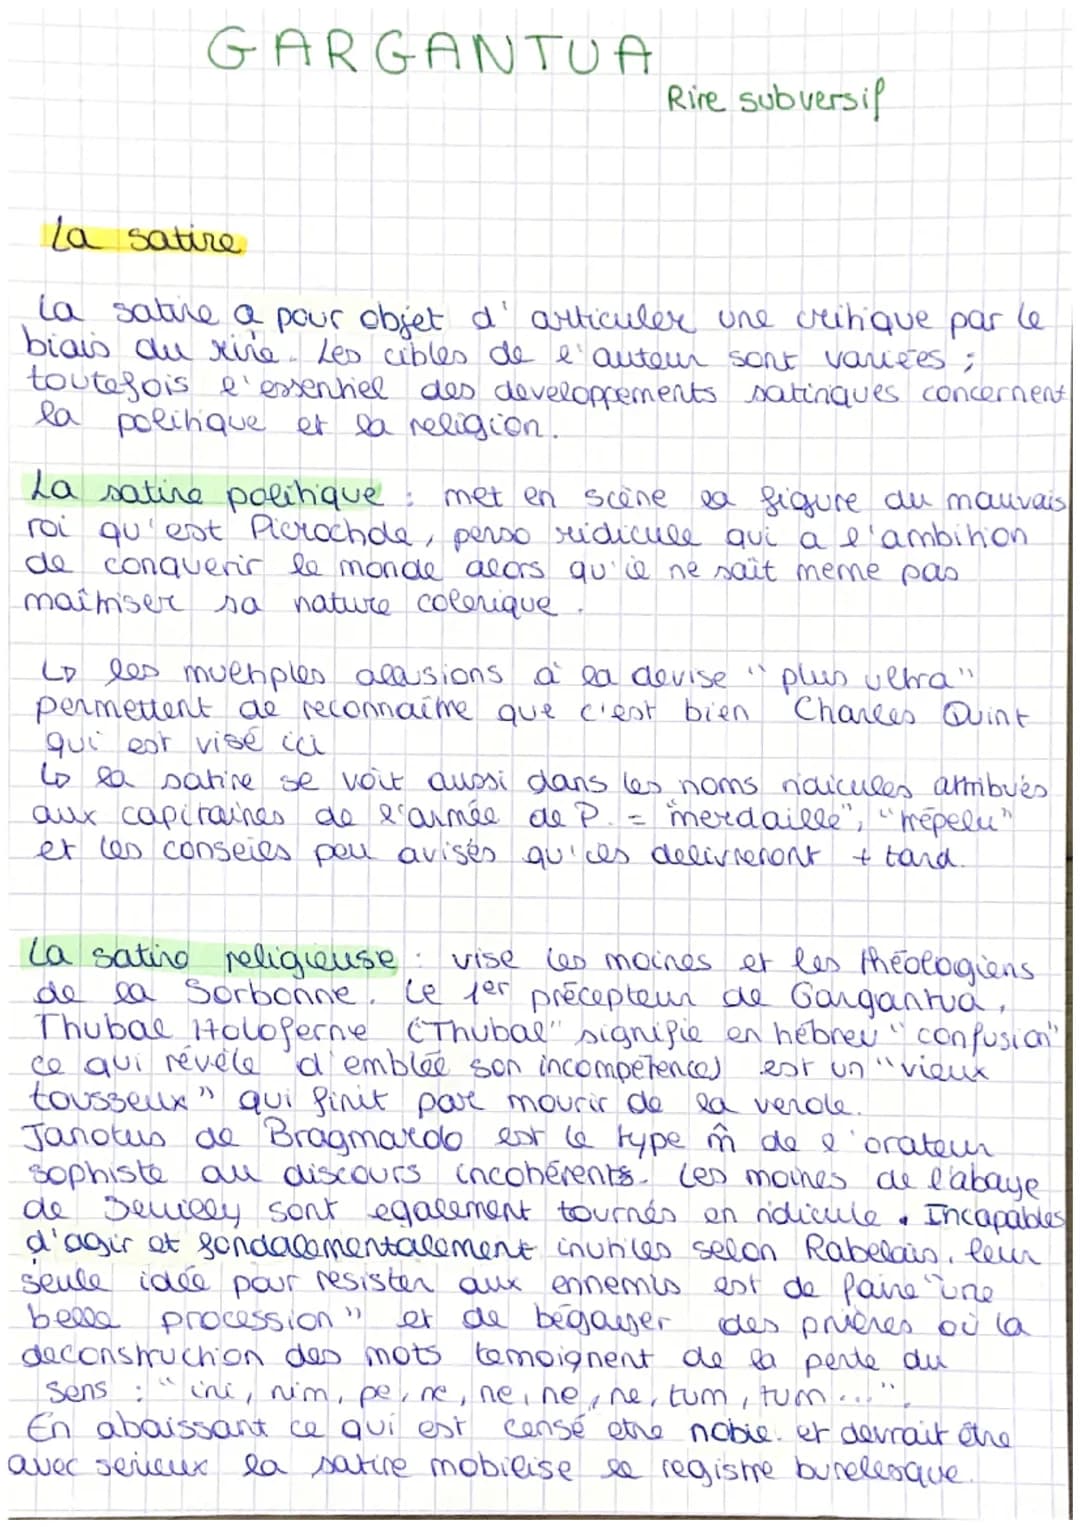 GARGANTUA
Rire subversif
La satire
La satire a pour objet d'articuler une critique par le
biais du rire. Les cibles de l'auteur sont variées ;
toutefois l'essentiel des developpements satiriques concernent
la politique et la religion.
La satire politique : met en scène la figure du mauvais
roi qu'est Picrochole, perso ridicule qui a l'ambition
de conquerir le monde alors qu'il ne sait meme pas
maîtriser sa nature colerique.
↳ les multiples allusions à la devise "plus ultra"
permettent de reconnaître que c'est bien Charles Quint
qui est visé ici
↳ la satire se voit aussi dans les noms ridicules attribués
aux capitaines de l'armée de P. = "merdaille", "trépelu"
et les conseils peu avisés qu'ils delivreront + tard.
La satire religieuse : vise les moines et les théologiens
de la Sorbonne. Le 1er précepteur de Gargantua,
Thubal Holoferne ("Thubal" signifie en hébreu "confusion"
ce qui révèle d'emblée son incompétence) est un "vieux
tousseux" qui finit par mourir de la verole.
Janotus de Bragmardo est le type m̂ de l'orateur
sophiste au discours incohérents. Les moines de l'abaye
de Seuilly sont egalement tournés en ridicule. Incapables
d'agir et fondalementalement inutiles selon Rabelais, leur
seule idée pour resister aux ennemis est de faire "une
belle procession" et de bégayer des prières où la
deconstruction des mots temoignent de la perte du
sens : "ini, nim, pe, ne, ne, ne, ne, tum, tum..."
En abaissant ce qui est censé etre noble et devrait être
avec serieux la satire mobilise le registre burelesque.